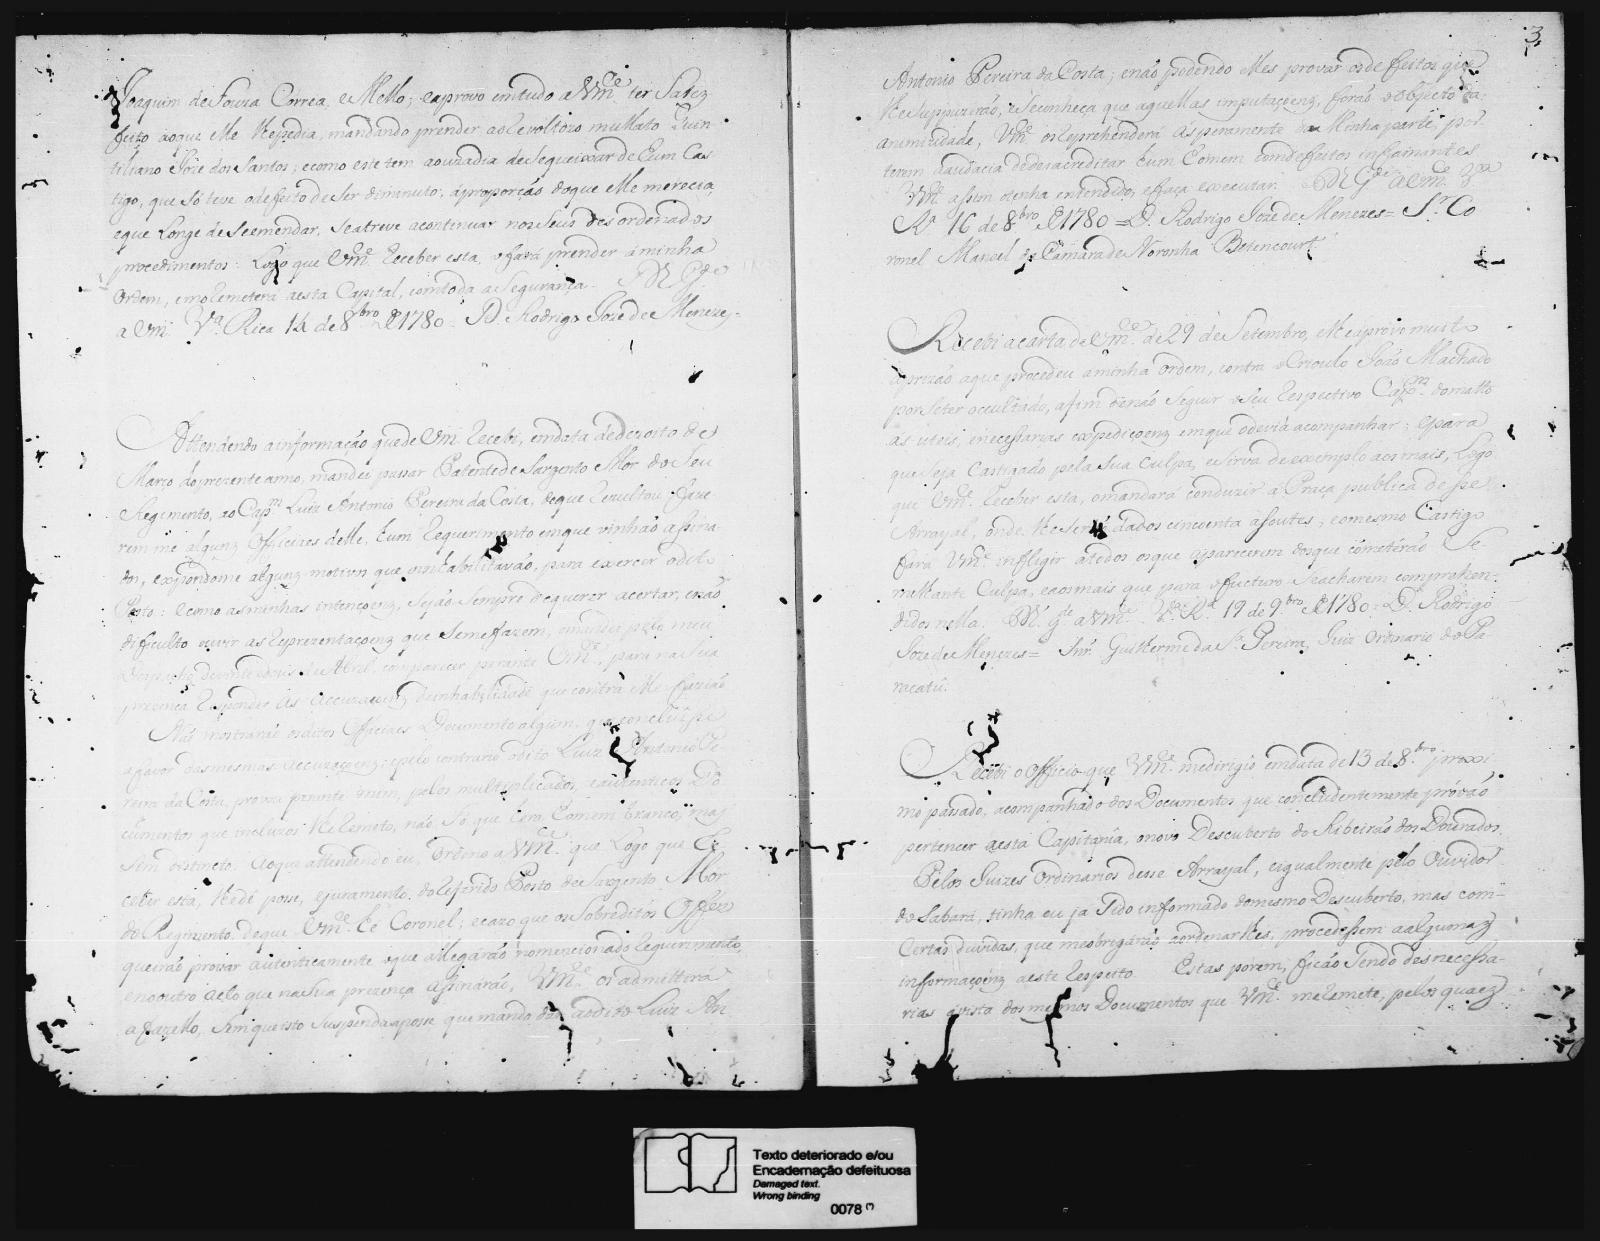 Joaquim de Souza Correa, e Mello; e aprovo em tudo a Vm.ce ter Satiz
feito ao que elle lhe pedia, mandando prender ao revoltozo mullato Quin
tiliano Joze dos Santos; e como este tem a ouzadia de se queixar de hum Cas
tigo, que só teve o defeito de ser diminuto, á proporção do que elle merecia,
e que longe de se emendar, se atreve a continuar nos seus desordenados
procedimentos: Logo que Vm.ce receber esta, o fará prender á minha
Ordem, e mo remeterá a esta Capital, com toda a Segurança. D.s G.de
a Vm.ce V.a Rica 14 de 8bro de 1780. D. Rodrigo Joze de Menezes.
Attendendo a informação que de Vm.ce recebi, em data de dezoito de
Março do prezente anno, mandei passar Patente de Sargento Mór do Seu
Regimento, ao Cap.m Luiz Antonio Pereira da Costa, de que rezultou faze
rem me alguns Officiaes delle, hum requerimento em que vinhão assina
dos, expondome alguns motivos que o inhabilitavão, para exercer o dito
Posto: e como as minhas intençoens, sejão sempre de querer acertar, e não
dificulto ouvir as reprezentaçoens que se me fazem, mandei pelo meu
despacho de vinte e dous de Abril comparecer perante Vm.ce, para na Sua
prezença responder ás accuzaçoens de inhabilidade que contra elle fazião
Não mostrarão os ditos Officiaes Documento algum, que concluisse
a favor das mesmas accuzaçoens; e pelo contrario o dito Luiz Antonio Pe
reira da Costa, provou perante mim, pelos multiplicados, e autenticos Do
cumentos que incluzos lhe remeto, não só que hera homem branco, mas
sem distincto. Ao que attendendo eu, Ordeno a Vm.ce que logo que re
ceber esta, lhe dê posse, e juramento do referido Posto de Sargento Mór
do Regimento, de que Vm.ce hé Coronel; e cazo que os Sobreditos Off.es
queirão provar autenticamente o que allegarão no mencionado requerimento,
e no outro acto que na Sua prezença assinarão, Vm.ce os admittirá
a fazello, sem que isto suspenda a posse que mando dar ao dito Luiz An
3
Antonio Pereira da Costa; e não podendo elles provar os defeitos que
lhe suppuzerão, e se conheça que aquellas imputaçoens, forão o objecto da
animizidade, Vm.ce os reprehenderá ásperamente da Minha parte, por
terem a audacia de desacreditar hum homem com defeitos infamantes
Vm.ce assim o tenha entendido, e faça executar. D.s G.de a Vm.ce V.a
R.a 16 de 8bro de 1780 = D. Rodrigo Joze de Menezes = S.r Co
ronel Manoel da Camara de Noronha Betencourt.
Recebi a carta de Vm.ce de 29 de Setembro, e lhe aprovo muito
a prizão a que procedeu á minha Ordem, contra o Crioulo João Machado
por se ter occultado, a fim de não seguir o seu respectivo Cap.m do matto
ás uteis, e necessarias expediçoens em que o devia acompanhar; e para
que seja castigado pela sua culpa, e sirva de exemplo aos mais, Logo
que Vm.ce receber esta, o mandará conduzir á Praça publica desse
Arrayal, onde lhe serão dados cincoenta assoutes; e o mesmo Castigo
fará Vm.ce infligir a todos os que apparecerem dos que cometerão Se
melhante Culpa, e aos mais que para o futuro se acharem comprehen
didos nella. D.s g.de a Vm.ce V.a R.a 19 de 9bro de 1780 = D. Rodrigo
Joze de Menezes = Snr. Guilherme da S.a Pereira, Juiz Ordinario do Pa
racatú.
Recebi o Officio que Vm.ce me dirigio em data de 13 de 8bro proxi
mo passado, acompanhado dos Documentos que concludentemente próvão
pertencer a esta Capitania, o novo Descuberto do Ribeirão dos Dourados.
Pelos Juizes Ordinarios desse Arrayal, e igualmente pelo Ouvidor
do Sabará, tinha eu ja sido informado do mesmo Descuberto, mas com
Certas duvidas, que me obrigárão a ordenar lhes, procedessem a algumas
informaçoens a este respeito. Estas porem, ficão sendo desnecessa-
rias á vista dos mesmos Documentos que Vm.ce me remete, pelos quaes
Texto deteriorado e/ou
Encadernação defeituosa
Damaged text.
Wrong binding
0078 (*)